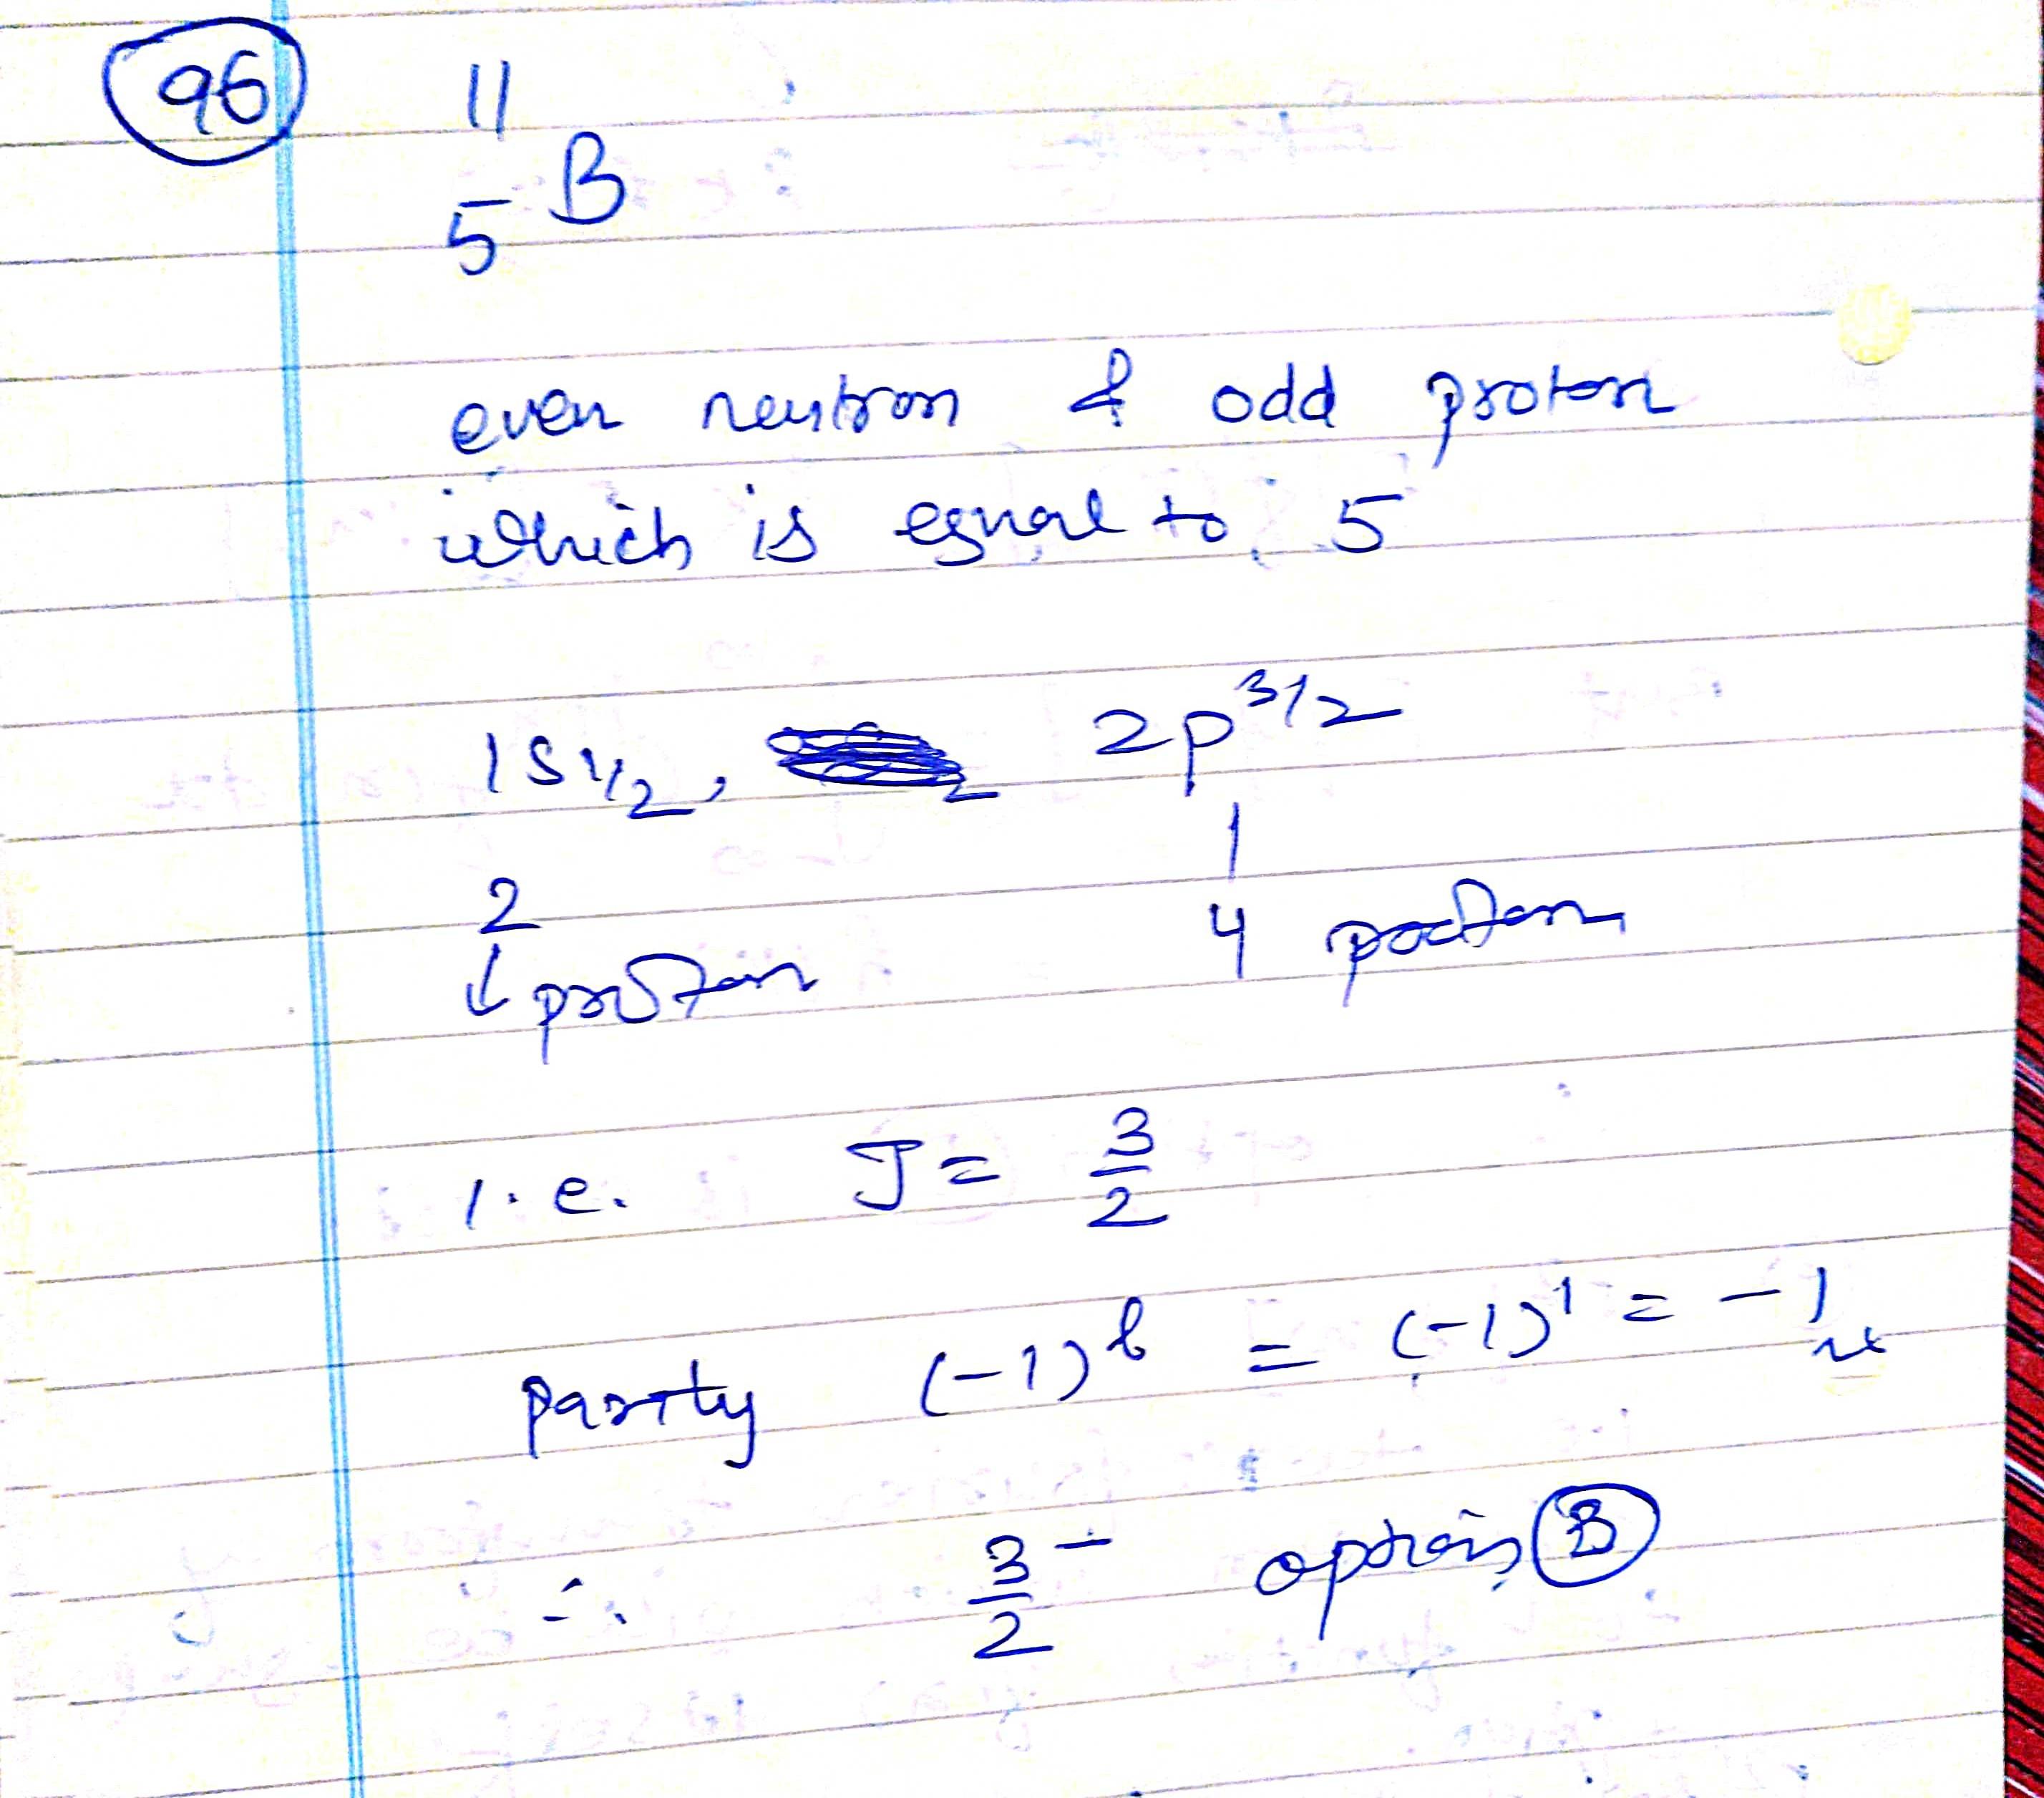 96
11
5 B
even neutron & odd proton
which is equal to 5
1s1/2, 2p3/2
2 4 proton
↓ proton
i.e. J = 3/2
parity (-1)^l = (-1)^1 = -1
∴ 3/2 - option B